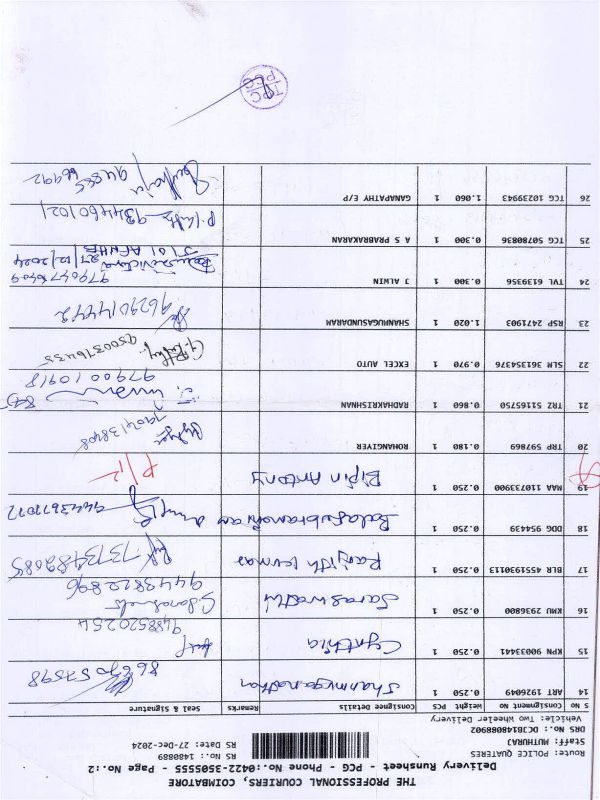 THE PROFESSIONAL COURIERS, COIMBATORE
Delivery Runsheet - PCG - Phone No.:0422-3505555 - Page No.:2
Route: POLICE QUATERES
Staff: MUTHURAJ RS No.: 1480889
DRS No.: DCJB1480889O2 RS Date: 27-Dec-2024
Vehicle: Two Wheeler Delivery
S NO Consignment No Weight PCS Consignee Details Remarks Seal & Signature
14 ART 1926049 0.250 1 Shanmuganathan
15 KPN 90033441 0.250 1 Cynthia 9488520254
16 KMU 2936800 0.250 1 Saraswathi 9443822896
17 BLR 455593O113 0.250 1 Ranjith kumar 7373482085
18 DDG 955439 0.250 1 Balasubramaniam 9443677072
19 MAA 110733900 0.250 1 Bipin Antony P/L
20 TRP 597869 0.180 1 ROHANGIVER
21 TRZ 51165750 0.860 1 RADHAKRISHNAN 9790010918
22 SLM 361354376 0.970 1 EXCEL AUTO 9500376435
23 RSP 2471903 1.020 1 SHANMUGASUNDARAM 9629014442
24 TVL 6139356 0.300 1 J ALWIN 27/12/2024
25 TCG 50780836 0.300 1 A S PRABRAKARAN
26 TCG 10239943 1.060 1 GANAPATHY E/P 94885 66992
TPC
PCG